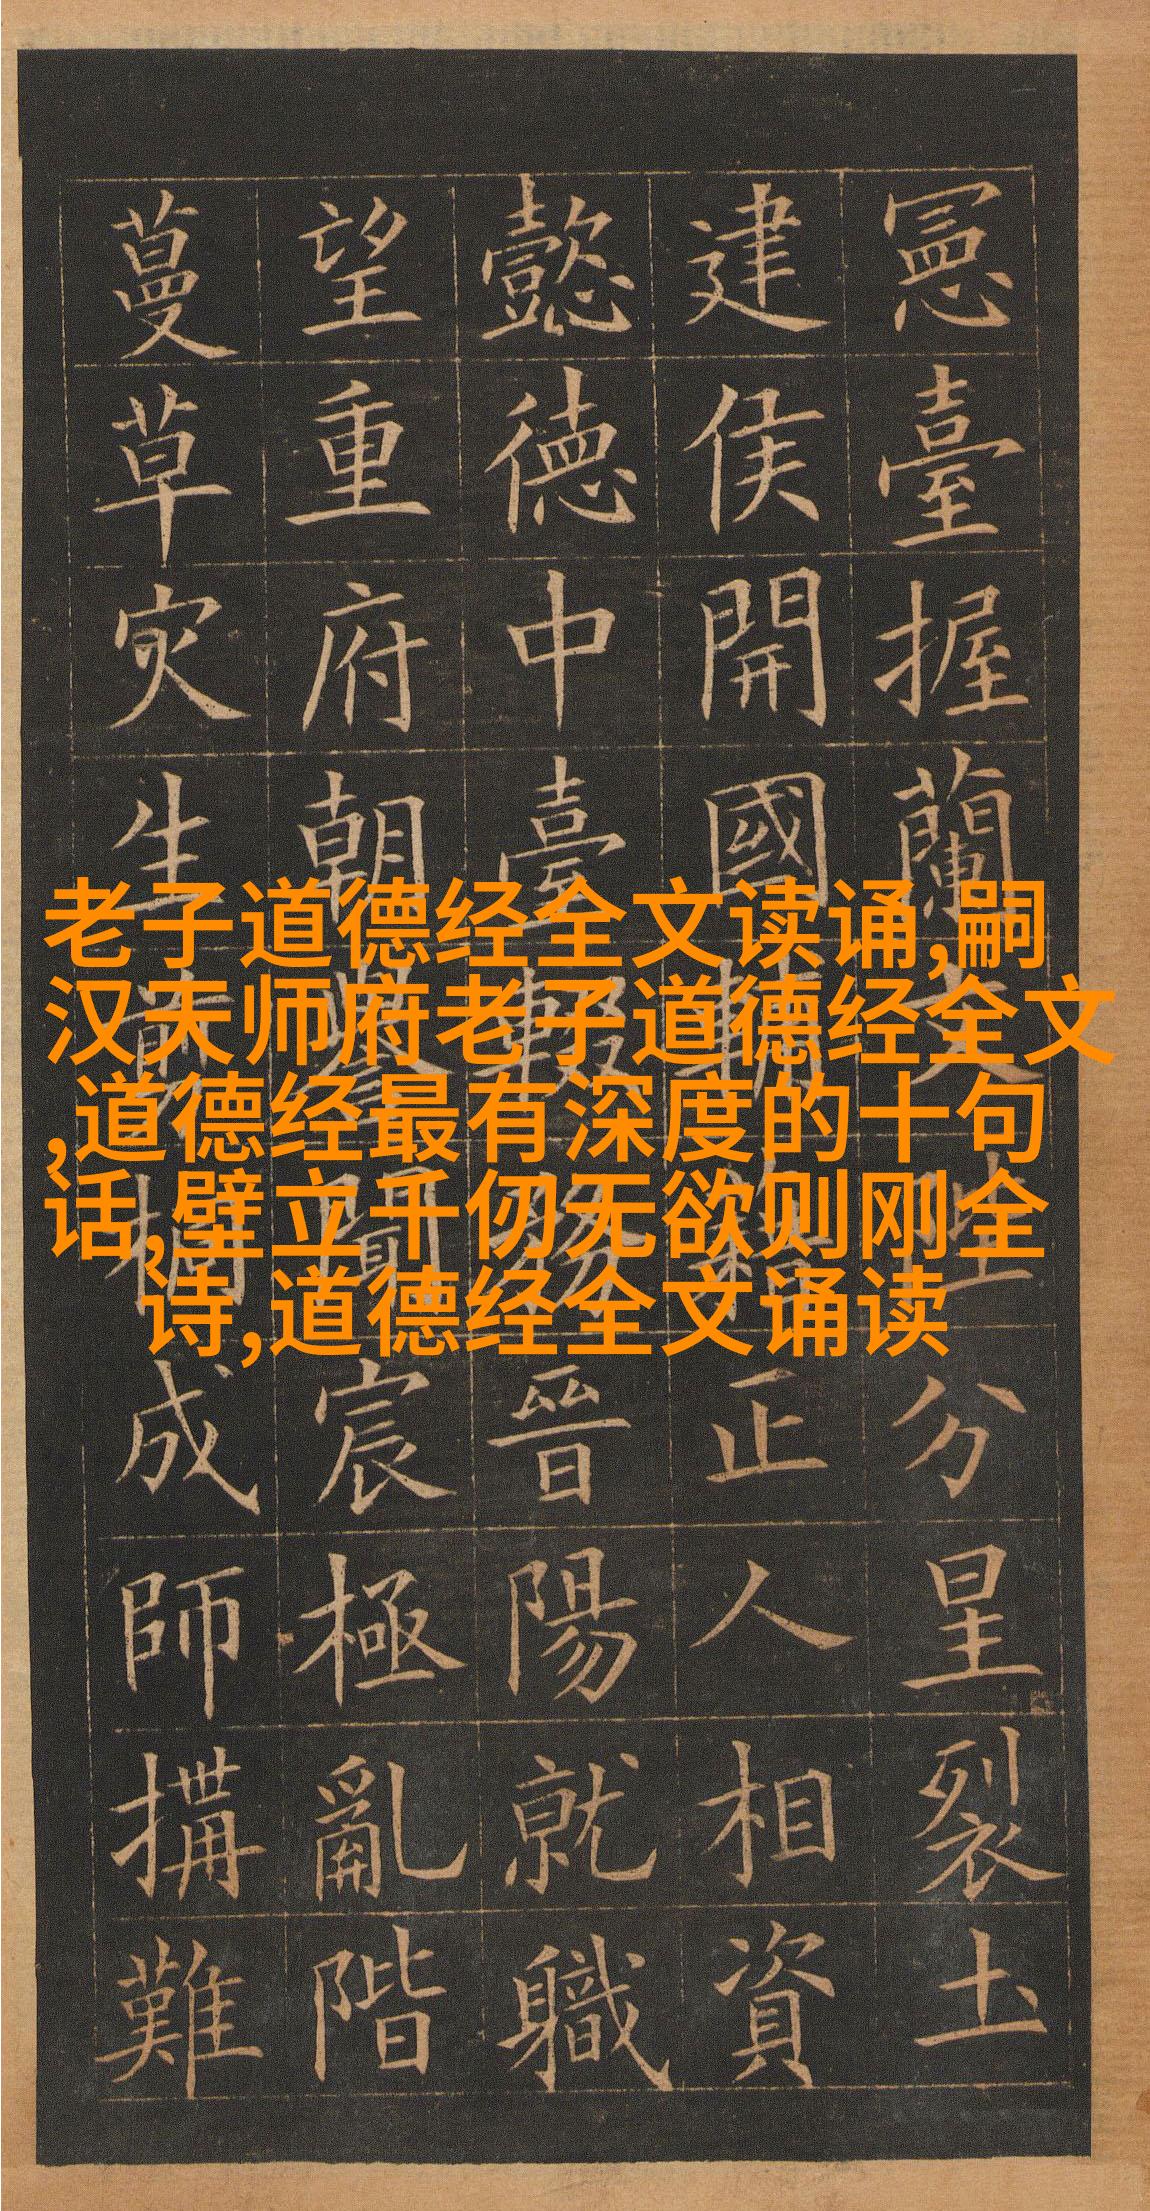 憲臺握蘭文陛分星裂土
建侯開國正人相資
懿德中臺輟務晉陽就職
望重府朝譽聞宸極亂階
蔓草灾生成師搆難
老子道德经全文读诵,嗣
汉天师府老子道德经全文
,道德经最有深度的十句
话,壁立千仞无欲则刚全
诗,道德经全文诵读